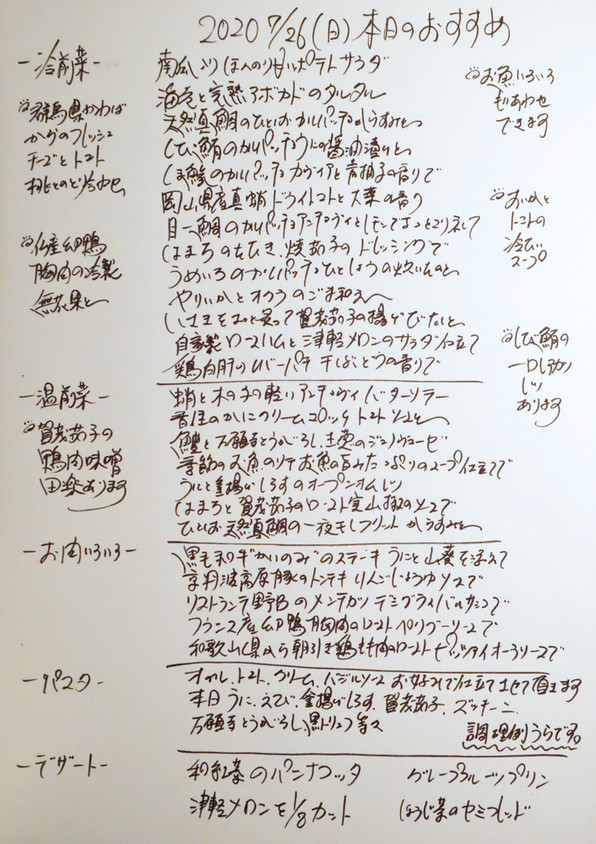 2020 7/26(日)本日のおすすめ
ー冷前菜ー
南瓜のほんのり甘いポテトサラダ
海老と完熟アボカドのタルタル
天然真鯛のひとしおカルパッチョからすみと
しび鮪のカルパッチョウニの醤油漬けと
しま鯵のカルパッチョ カヴィアと青柚子の香りで
岡山県産真蛸 ドライトマトと大葉の香り
目一鯛のカルパッチョアンチョヴィと
はまちのたたき、焼茄子のドレッシングで
うめいろのカルパッチョ
やりいかとオクラのごま和え
賀茂茄子の揚げびたしと
自家製ロースハムと津軽メロンのサラダ仕立て
鶏白肝のレバーパテ 干しぶどうの香りで
群馬県かわば
チーズとトマト
胸肉の冷製
無花果と
お魚いろいろ
もりあわせ
できます
トマトの
冷たい
スープ
しび鮪の
あります
ー温前菜ー
蛸と木の子の軽いアンチョヴィバターソテー
かにクリームコロッケ トマトソースと
鱧と万願寺とうがらし、生姜のジェノヴェーゼ
季節のお魚のソテーお魚の旨みたっぷりのスープ仕立てで
うにと釜揚げしらすのオープンオムレツ
はまちと賀茂茄子のロースト実山椒のソースで
ひとしお天然真鯛の一夜干しフリット からすみと
賀茂茄子の
鴨肉味噌
田楽あります
ーお肉いろいろー
黒毛和牛"かいのみ"のステーキ うにと山葵を添えて
京丹波高原豚のトンテキ りんごじょうゆソースで
リストランテ野呂のメンチカツ デミグラィバルサミコで
フランス産 幼鴨胸肉のロースト ペリグーソースで
和歌山県から朝引き鶏もも肉のロースト ピッツァイオーラソースで
ーパスターー
オイル、トマト、クリーム、バジルソース お好みで仕立てさせて頂きます
本日 うに、えび、釜揚げしらす、賀茂茄子、ズッキーニ、
万願寺とうがらし、黒トリュフ等々
ーデザートー
和紅茶のパンナコッタ グレープフルーツプリン
津軽メロンを1/8カット ほうじ茶のセミフレッド